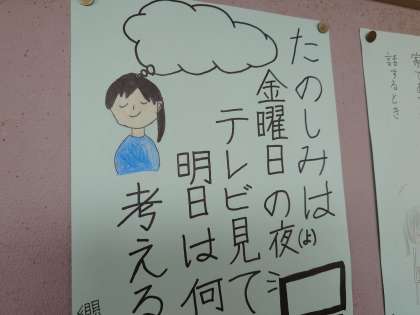 たのしみは
金曜日の夜(よ)
テレビ見て
明日は何
考える
話するとき